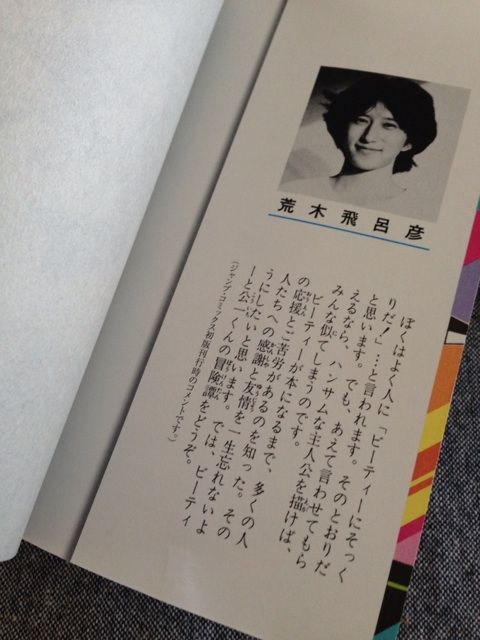 荒木飛呂彦
ぼくはよく人に「ビーティーにそっく
りだ！」…と言われます。そのとおりだ
と思います。でも、あえて言わせてもら
えるなら、ハンサムな主人公を描けば、
みんな似てしまうのです。
ビーティーが本になるまで、多くの人
の応援とご苦労があるのを知った。その
人たちへの感謝と友情を一生忘れないよ
うにしたいと思います。では、ビーティ
ーと公一くんの冒険譚をどうぞ。
（ジャンプ・コミックス初版刊行時のコメントです。）